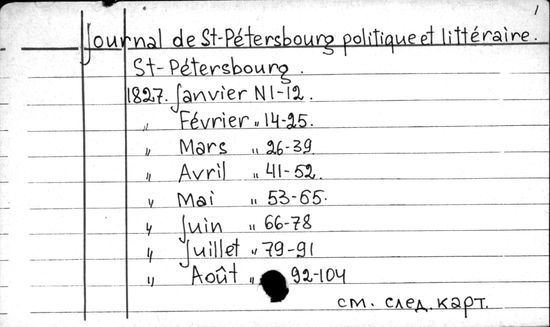 1
Journal de St-Pétersbourg politique et littéraire.
St-Pétersbourg.
1827. Janvier N1-12.
" Février " 14-25.
" Mars " 26-39
" Avril " 41-52.
" Mai " 53-65.
" Juin " 66-78
" Juillet " 79-91
" Août " 92-104
см. след. карт.